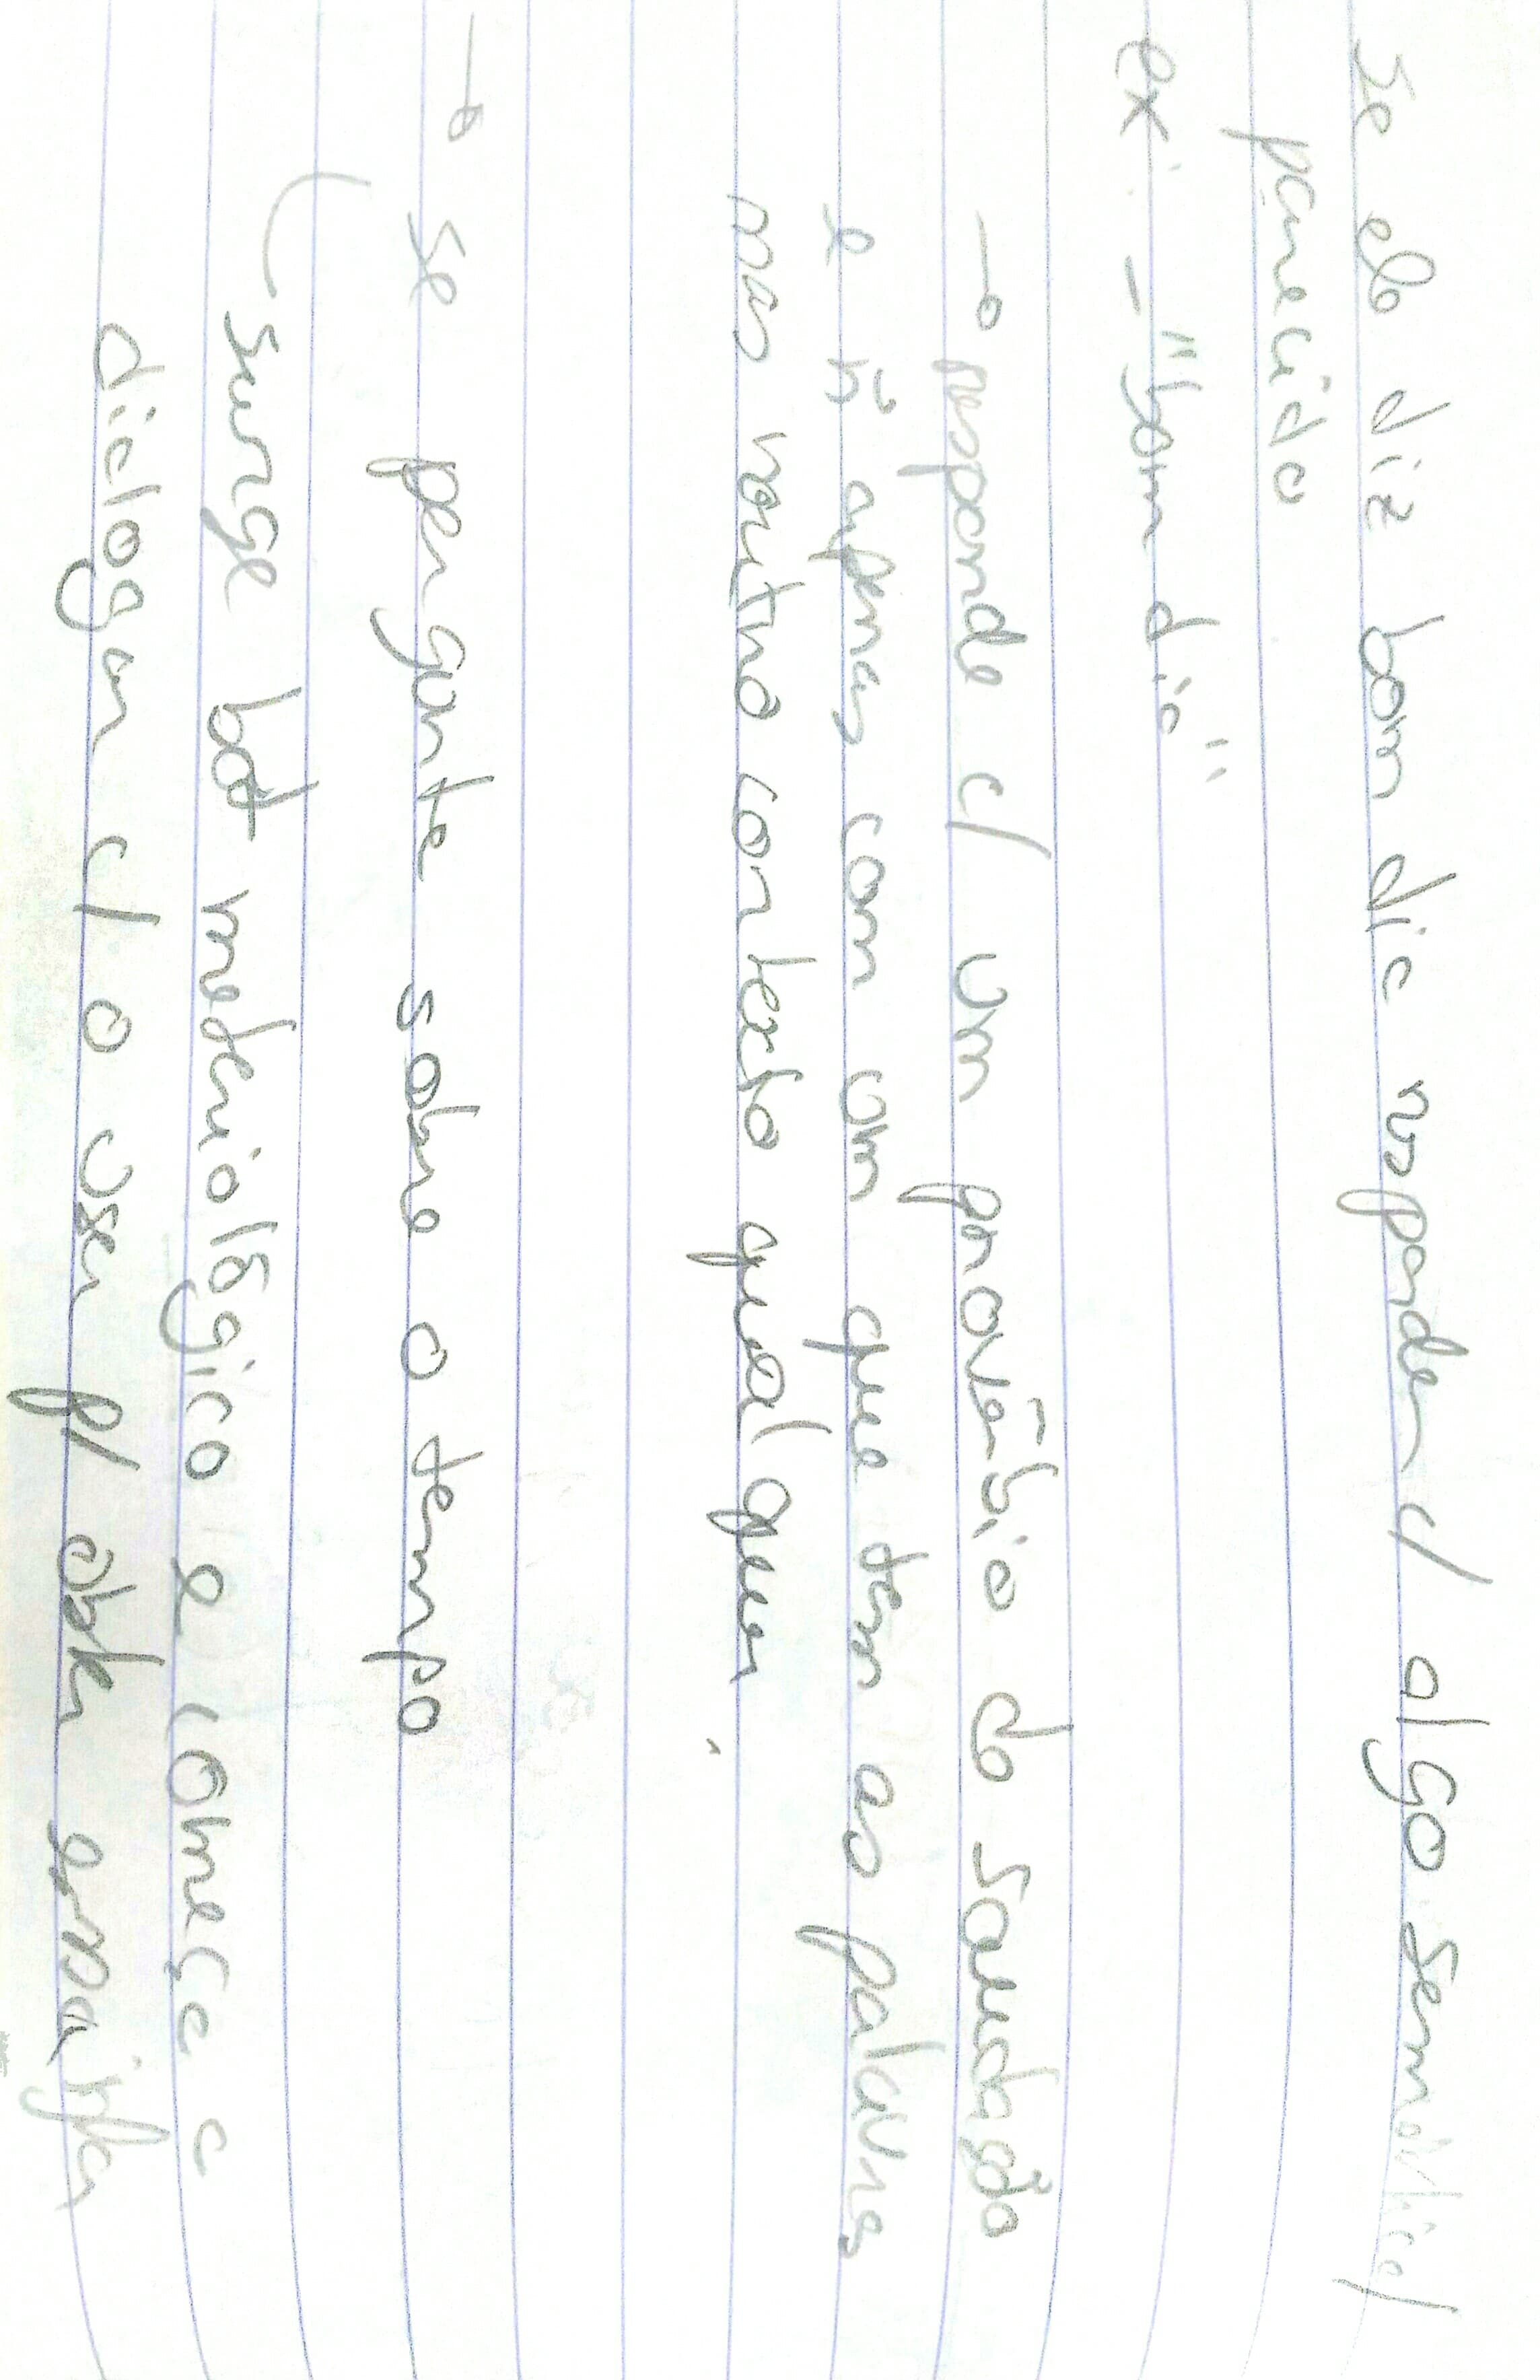 se ele diz bom dia responder c/ algo semântico/
parecido
ex: - "bom dia"
→ responde c/ um provérbio de saudação
e ñ apenas com um que tem as palavras
mas noutro contexto qualquer.
→ se pergunta sobre o tempo
surge bot meteriológico e começa a
dialogar c/ o user p/ obter essa